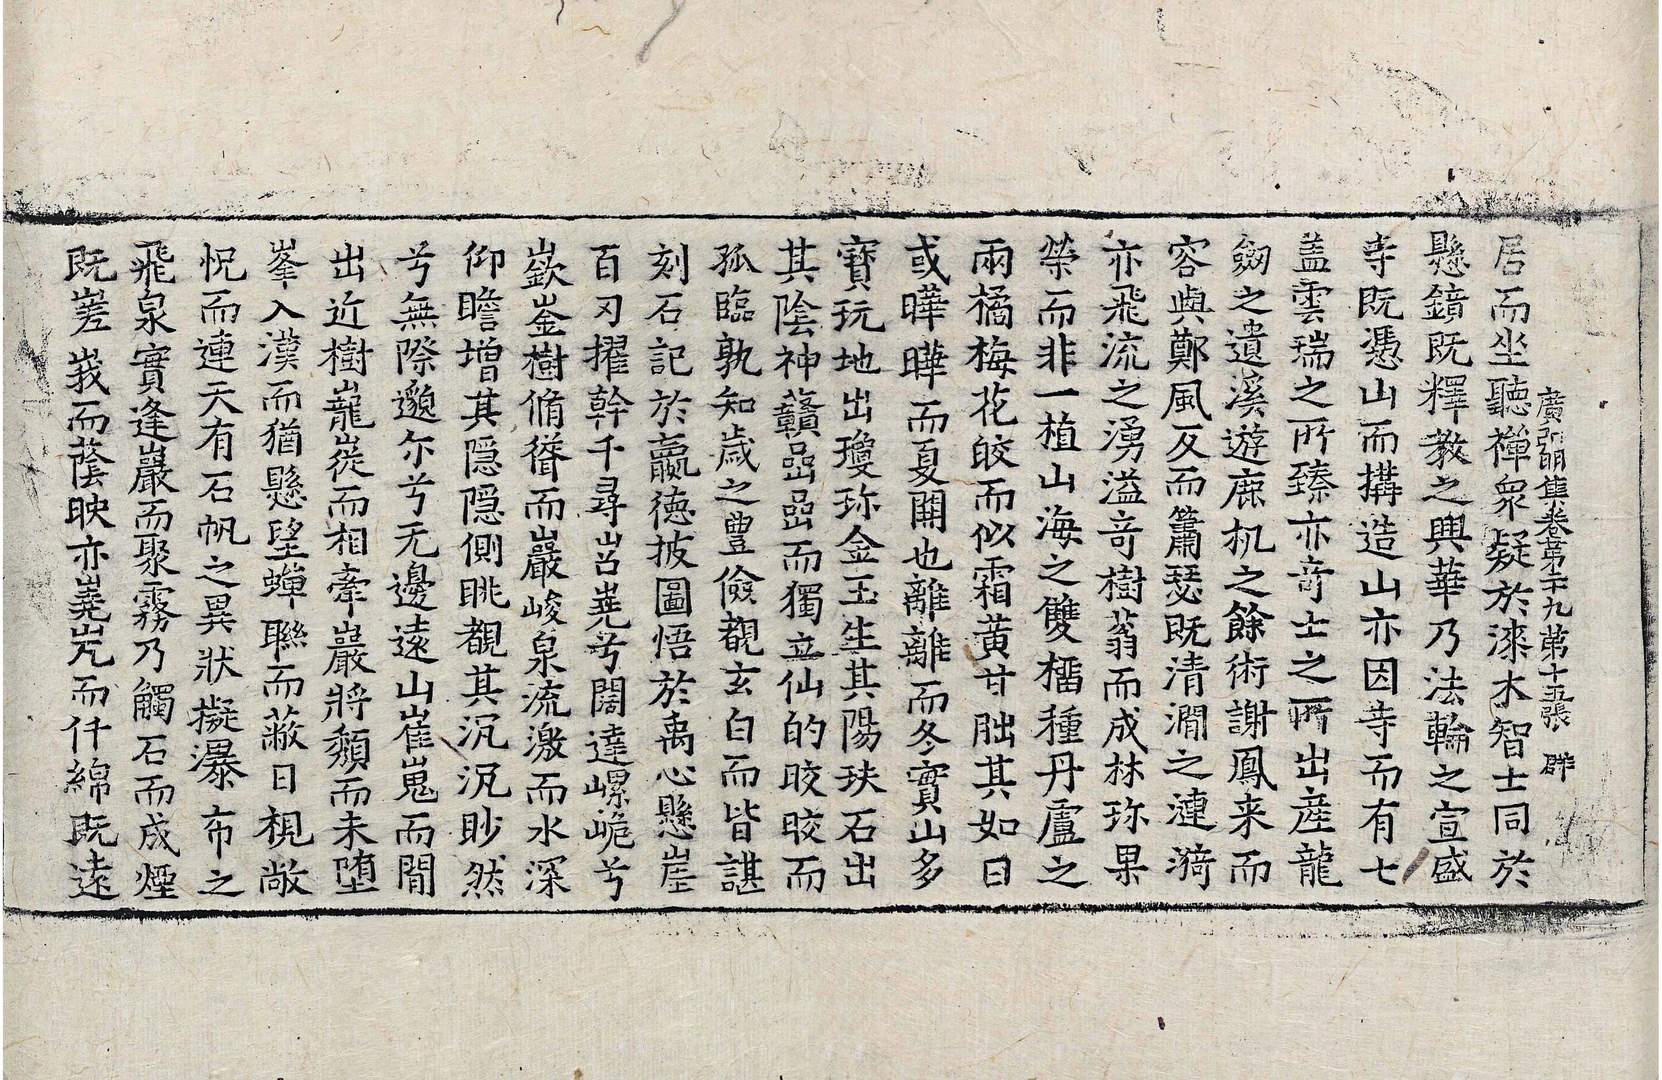 廣弘明集卷第二十九 第十五張 群
居而坐聽禪衆疑於漆木智士同於
懸鏡既釋教之興華乃法輪之宣盛
寺既憑山而搆造山亦因寺而有七
盖雲瑞之所臻亦竒士之所出産龍
劒之遺溪遊鹿机之餘術謝鳳来而
容與鄭風反而簫瑟既清澗之漣漪
亦飛流之湧溢竒樹蓊而成林珎果
榮而非一植山海之雙榅種丹盧之
兩橘梅花皎而似霜黄甘朏其如日
或曄曄而夏開也離離而冬實山多
寶玩地出瓊珎金玉生其陽玞石出
其陰神虈嵒嵒而獨立仙的晈晈而
孤臨孰知歳之豊儉覩玄白而皆諶
刻石記於嬴徳披圖悟於禹心懸崖
百刃擢幹千尋岧嶤兮闊達嵺峗兮
嶔崟樹脩聳而巖峻泉流激而水深
仰瞻增其隐隐側眺覩其沉沉眇然
兮無際邈尓兮无邊遠山崔嵬而閒
出近樹巃嵷而相牽巖將頽而未墮
峯入漢而猶懸壁蟬聯而蔽日梘敞
怳而連天有石帆之異狀擬瀑布之
飛泉實逢巖而聚霧乃觸石而成煙
既嵳峩而蔭映亦嶤屼而仟綿既逺